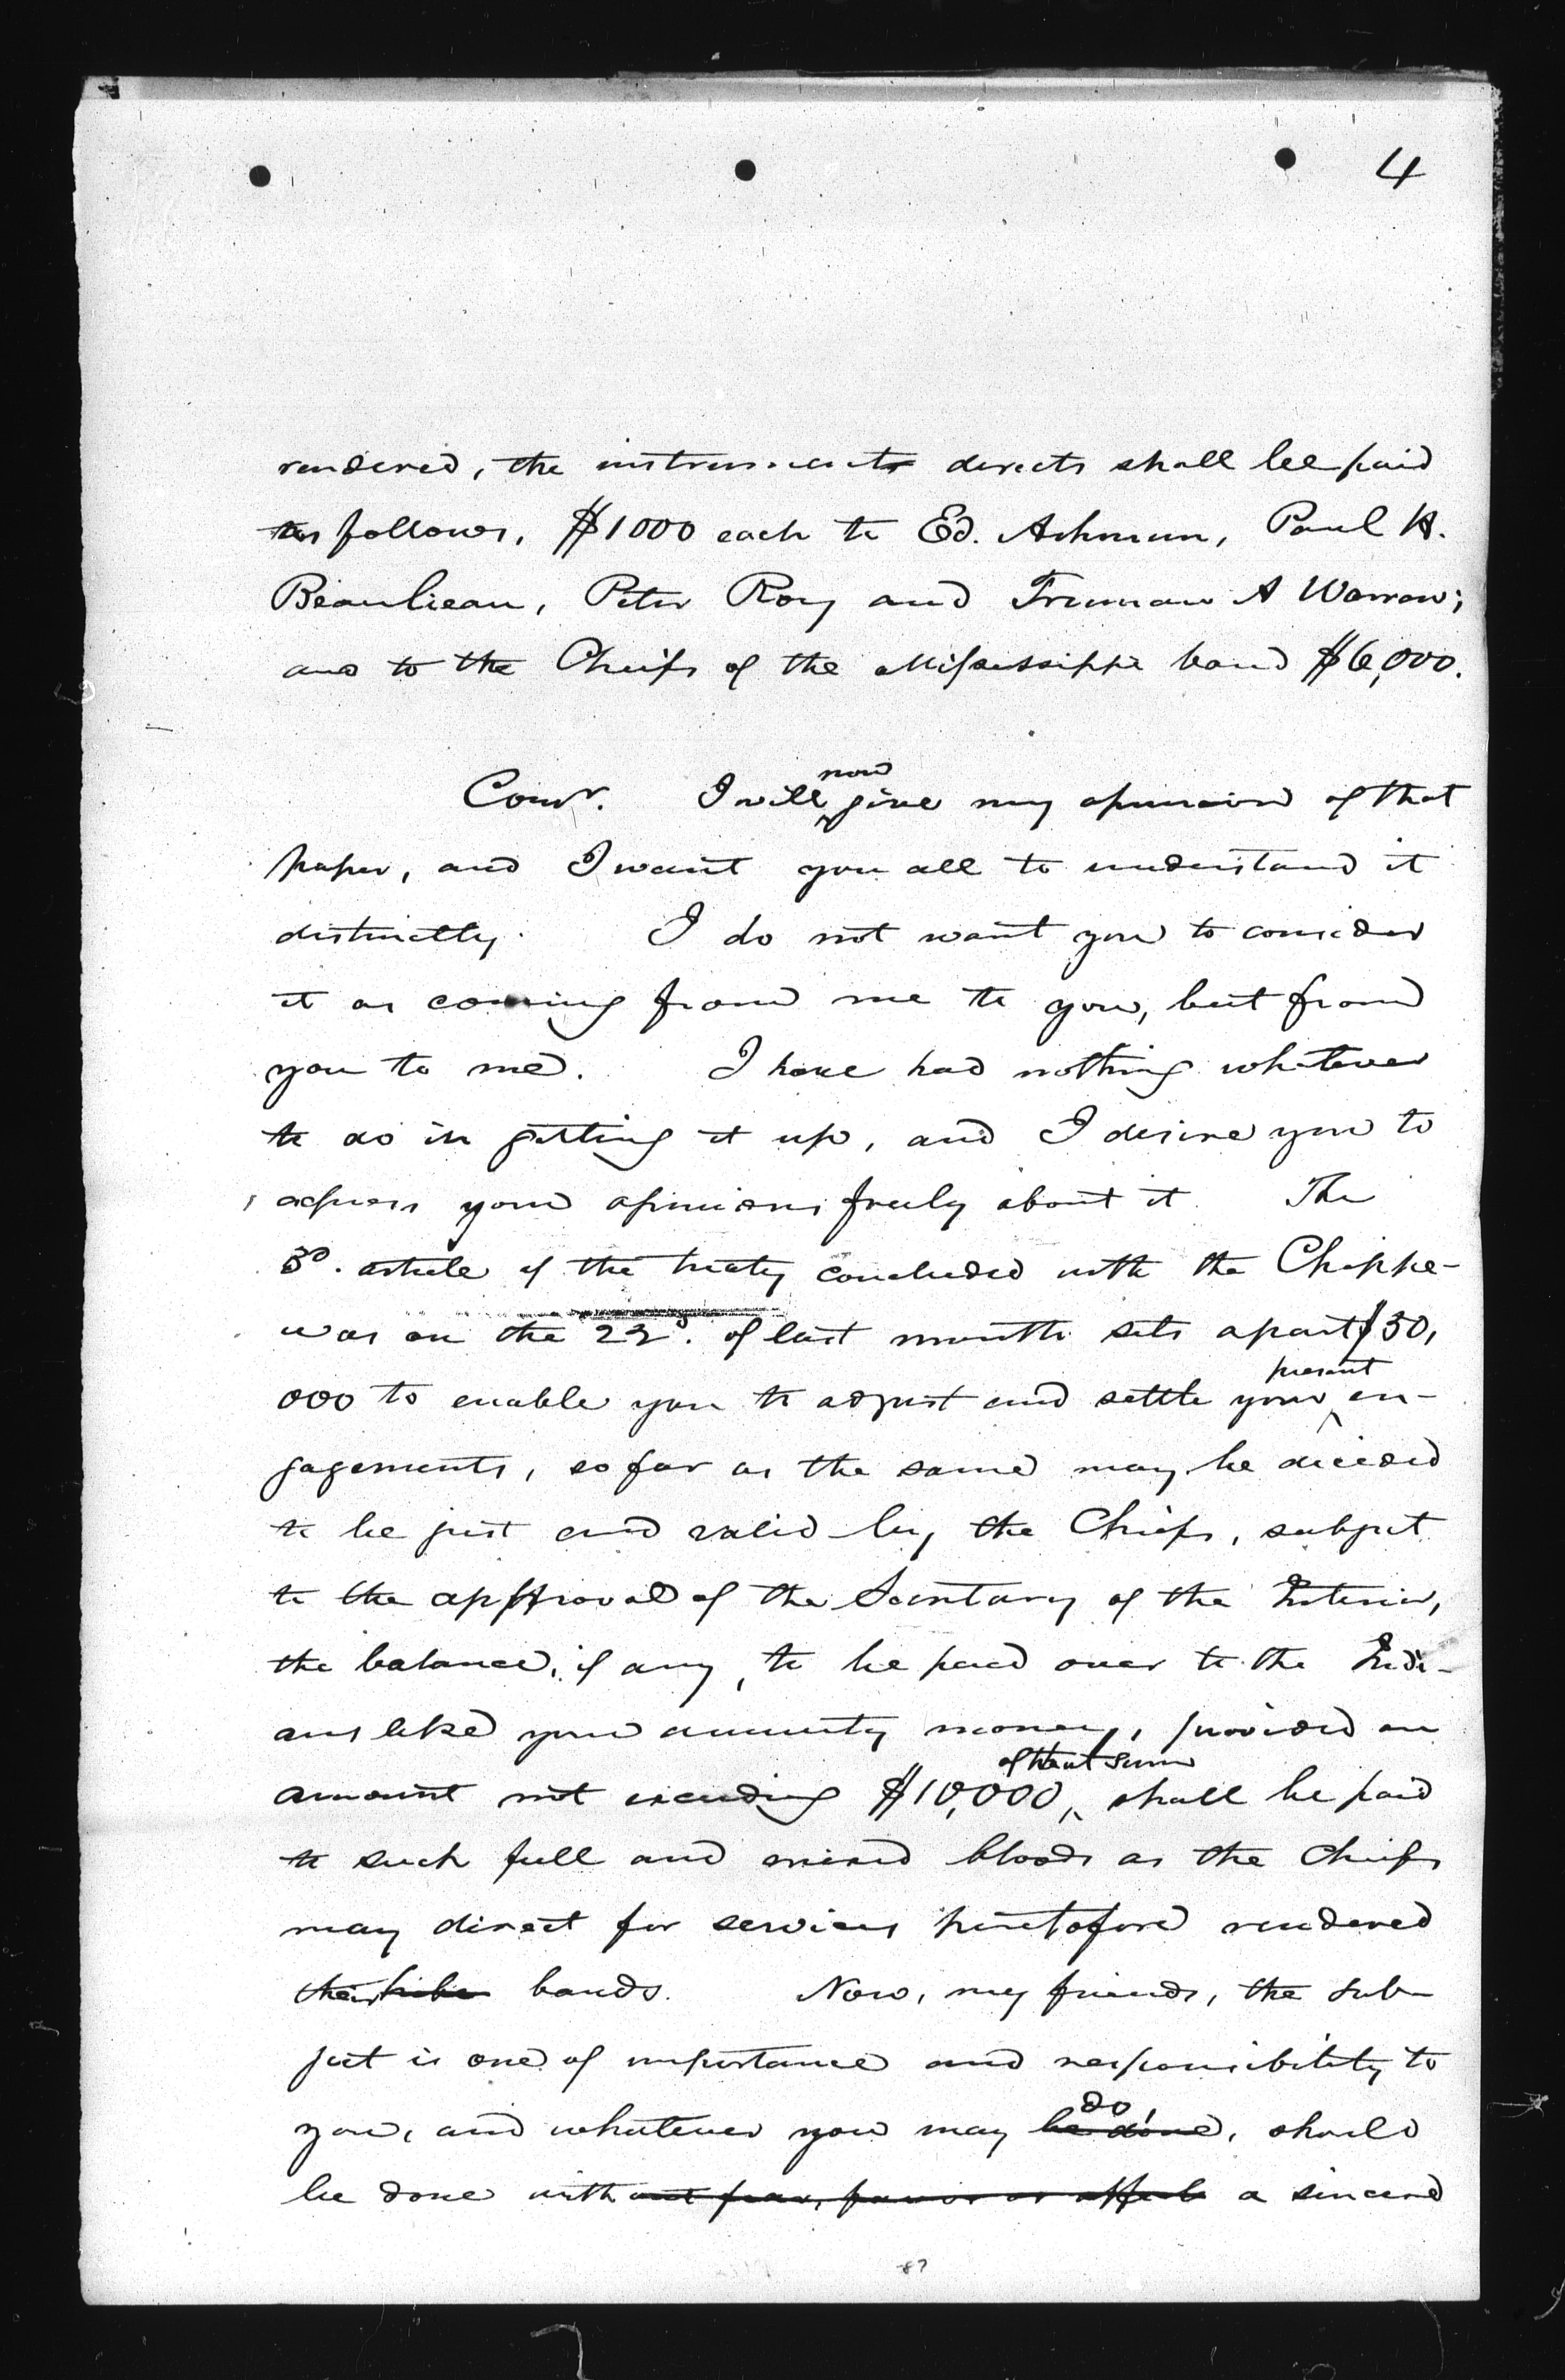 4
rendered, the instrument directs shall be paid
as follows, $1000 each to Ed. Ashmun, Paul H.
Beaulieau, Peter Roy and Truman A Warren;
and to the Chiefs of the Mississippi band $6,000.
Comr. I will now give my opinion of that
paper, and I want you all to understand it
distinctly. I do not want you to consider
it as coming from me to you, but from
you to me. I have had nothing whatever
to do in getting it up, and I desire you to
express your opinions freely about it. The
3d. article of the treaty concluded with the Chippe-
was on the 22d. of last month sets apart $30,
000 to enable you to adjust and settle your present en-
gagements, so far as the same may be decided
to be just and valid by the Chiefs, subject
to the approval of the Secretary of the Interior,
the balance, if any, to be paid over to the Indi-
ans like your annuity money, provided an
amount not exceeding $10,000, of that sum shall be paid
to such full and mixed bloods as the Chiefs
may direct for services heretofore rendered
their tribe bands. Now, my friends, the sub-
ject is one of importance and responsibility to
you, and whatever you may be done, do, should
be done without fear, favor or affect a sincere
87